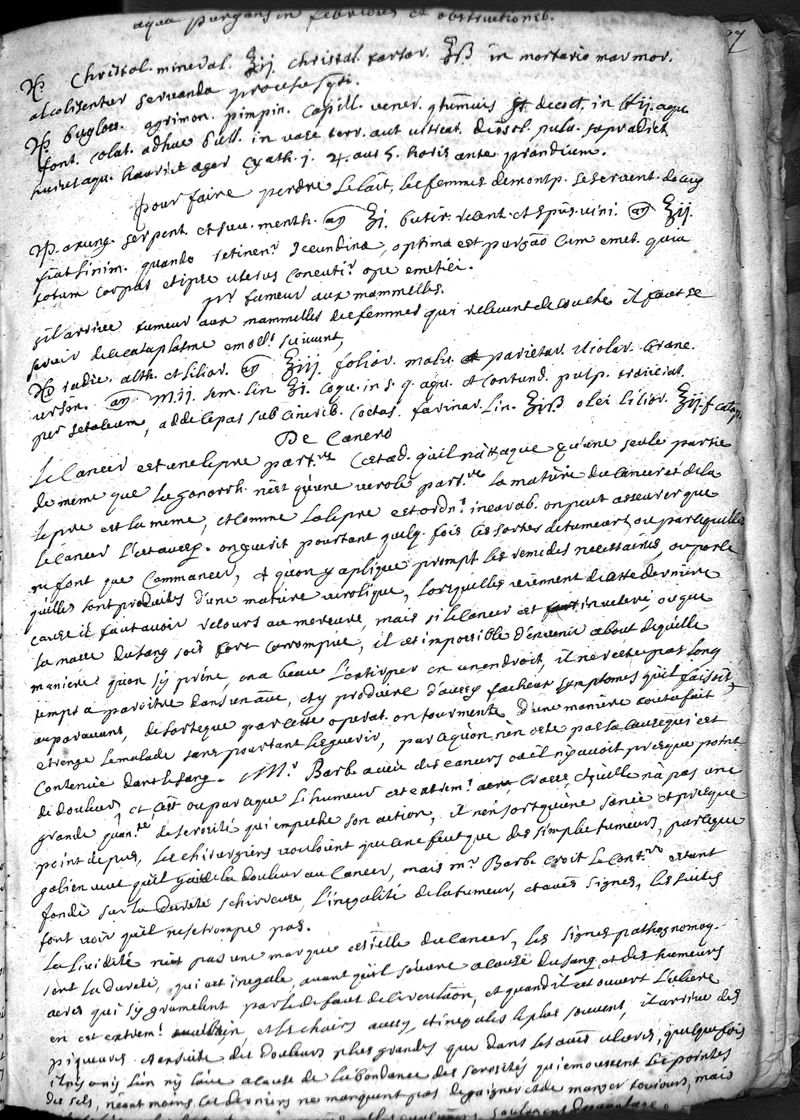 aqua purgans in febribus et obstructionib.
27
℞ Christal. mineral. ℥ij. christal. tartar. ℥iß in mortario marmor.
alcolisentur servanda
℞ bugloss. agrimon. pimpin. capill. vener. decoct. in aqu
font. colat. adhuc bull. in vase terr. aut vitreat. dissol. pulv. supradict
aqu. hauriet ager cyath. j. 4. aut 5. horis ante prandium.
Pour faire perdre le lait, les femmes de montp. se servent
℞. axung. serpent et suc. menth. an ℥i. butir. recent. et spūs. vini. an ℥ij.
fiat linim. quando retinenr secundina, optima est purgāo cum emet. quia
totum corpus et ipse uterus concutir ope emetici.
pr tumeur aux mammelles.
s'il arrive tumeur aux mammelles des femmes qui relevent de couche il faut se
servir de la cataplasme emolli suivant,
℞ radic. alth. et lilior. an ℥iij. folior. malv. parietar. violar. branc.
ursin. an m.ij. sem. lin ℥i. coqu. in s. q. aqu. et contund. pulp. traiiciat.
per setaceum, adde cepas sub cinerib. coctas. farinar. lin. ℥iß olei lilior. ℥ij. f. catap.
De Cancro
Le Cancer est une lepre partre. Cestad. qu'il n'attaque qu'une seule partie
de meme que la gonorrh. n'est qu'une verole partre. la matiere du cancer et de la
lepre est la meme, et comme la lepre est ordinr. incurab. on peut asseurer que
le Cancer l'est aussy. on guerit pourtant quelq. fois les sortes de tumeurs, ou parcequ'elles
ne font que commancer, et qu'on y aplique prompt les remedes necessaires, ou parce
qu'elles sont produites d'une matiere verolique, lorsqu'elles viennent de cette derniere
cause il faut avoir recours au mercure, mais si le Cancer est inveteré, ou que
la masse du sang soit fort corrompue, il est impossible d'en venir about de quelle
maniere qu'on s'y prene, on a beau l'extirper en un endroit, il ne reste pas long
temps a paroitre dans un aue, et y produire d'aussy facheux symptomes qu'il faisoit
auparavant, de sorte que par cette operat. on tourmente d'une maniere tout a fait
etrange le malade sans pourtant le guerir, parcequ'on n'en ote pas la cause qui est
contenue dans le sang. Mr. Barbe a veu des cancers où il n'y avoit presque point
de douleur, et c'est ou parceque l'humeur est extrem. crasse et qu'elle n'a pas une
grande quantité de serosité qui empeche son action, il n'en sort qu'une sanie et presque
point de pus, les chirurgiens vouloient que ce ne fut que des simples tumeurs, parceque
galien veut qu'il y ait de la douleur au Cancer, mais mr. Barbe croit le contre. etant
fondé sur la dureté schirreuse, l'inegalité de la tumeur, et aues signes, les suites
font voir qu'il ne se trompe pas.
La lividité n'est pas une marque essielle du Cancer, les signes pathognomoq.
sont la dureté, qui est inegale, avant qu'il s'ouvre a cause du sang et des humeurs
acres qui s'y grumelent par le defaut de circulaōn, et quand il est ouvert l'ulcere
en est extrem. vilain, et les chairs aussy, et inegales le plus souvent, il arrive des
piqueures et ensuite des douleurs plus grandes que dans les aues ulceres, quelque fois
il n'y a ny l'un ny l'aue a cause de l'abondance des serosités qui emoussent les pointes
des sels, néant moins ces derniers ne manquent pas de gaigner et de manger toujours, mais